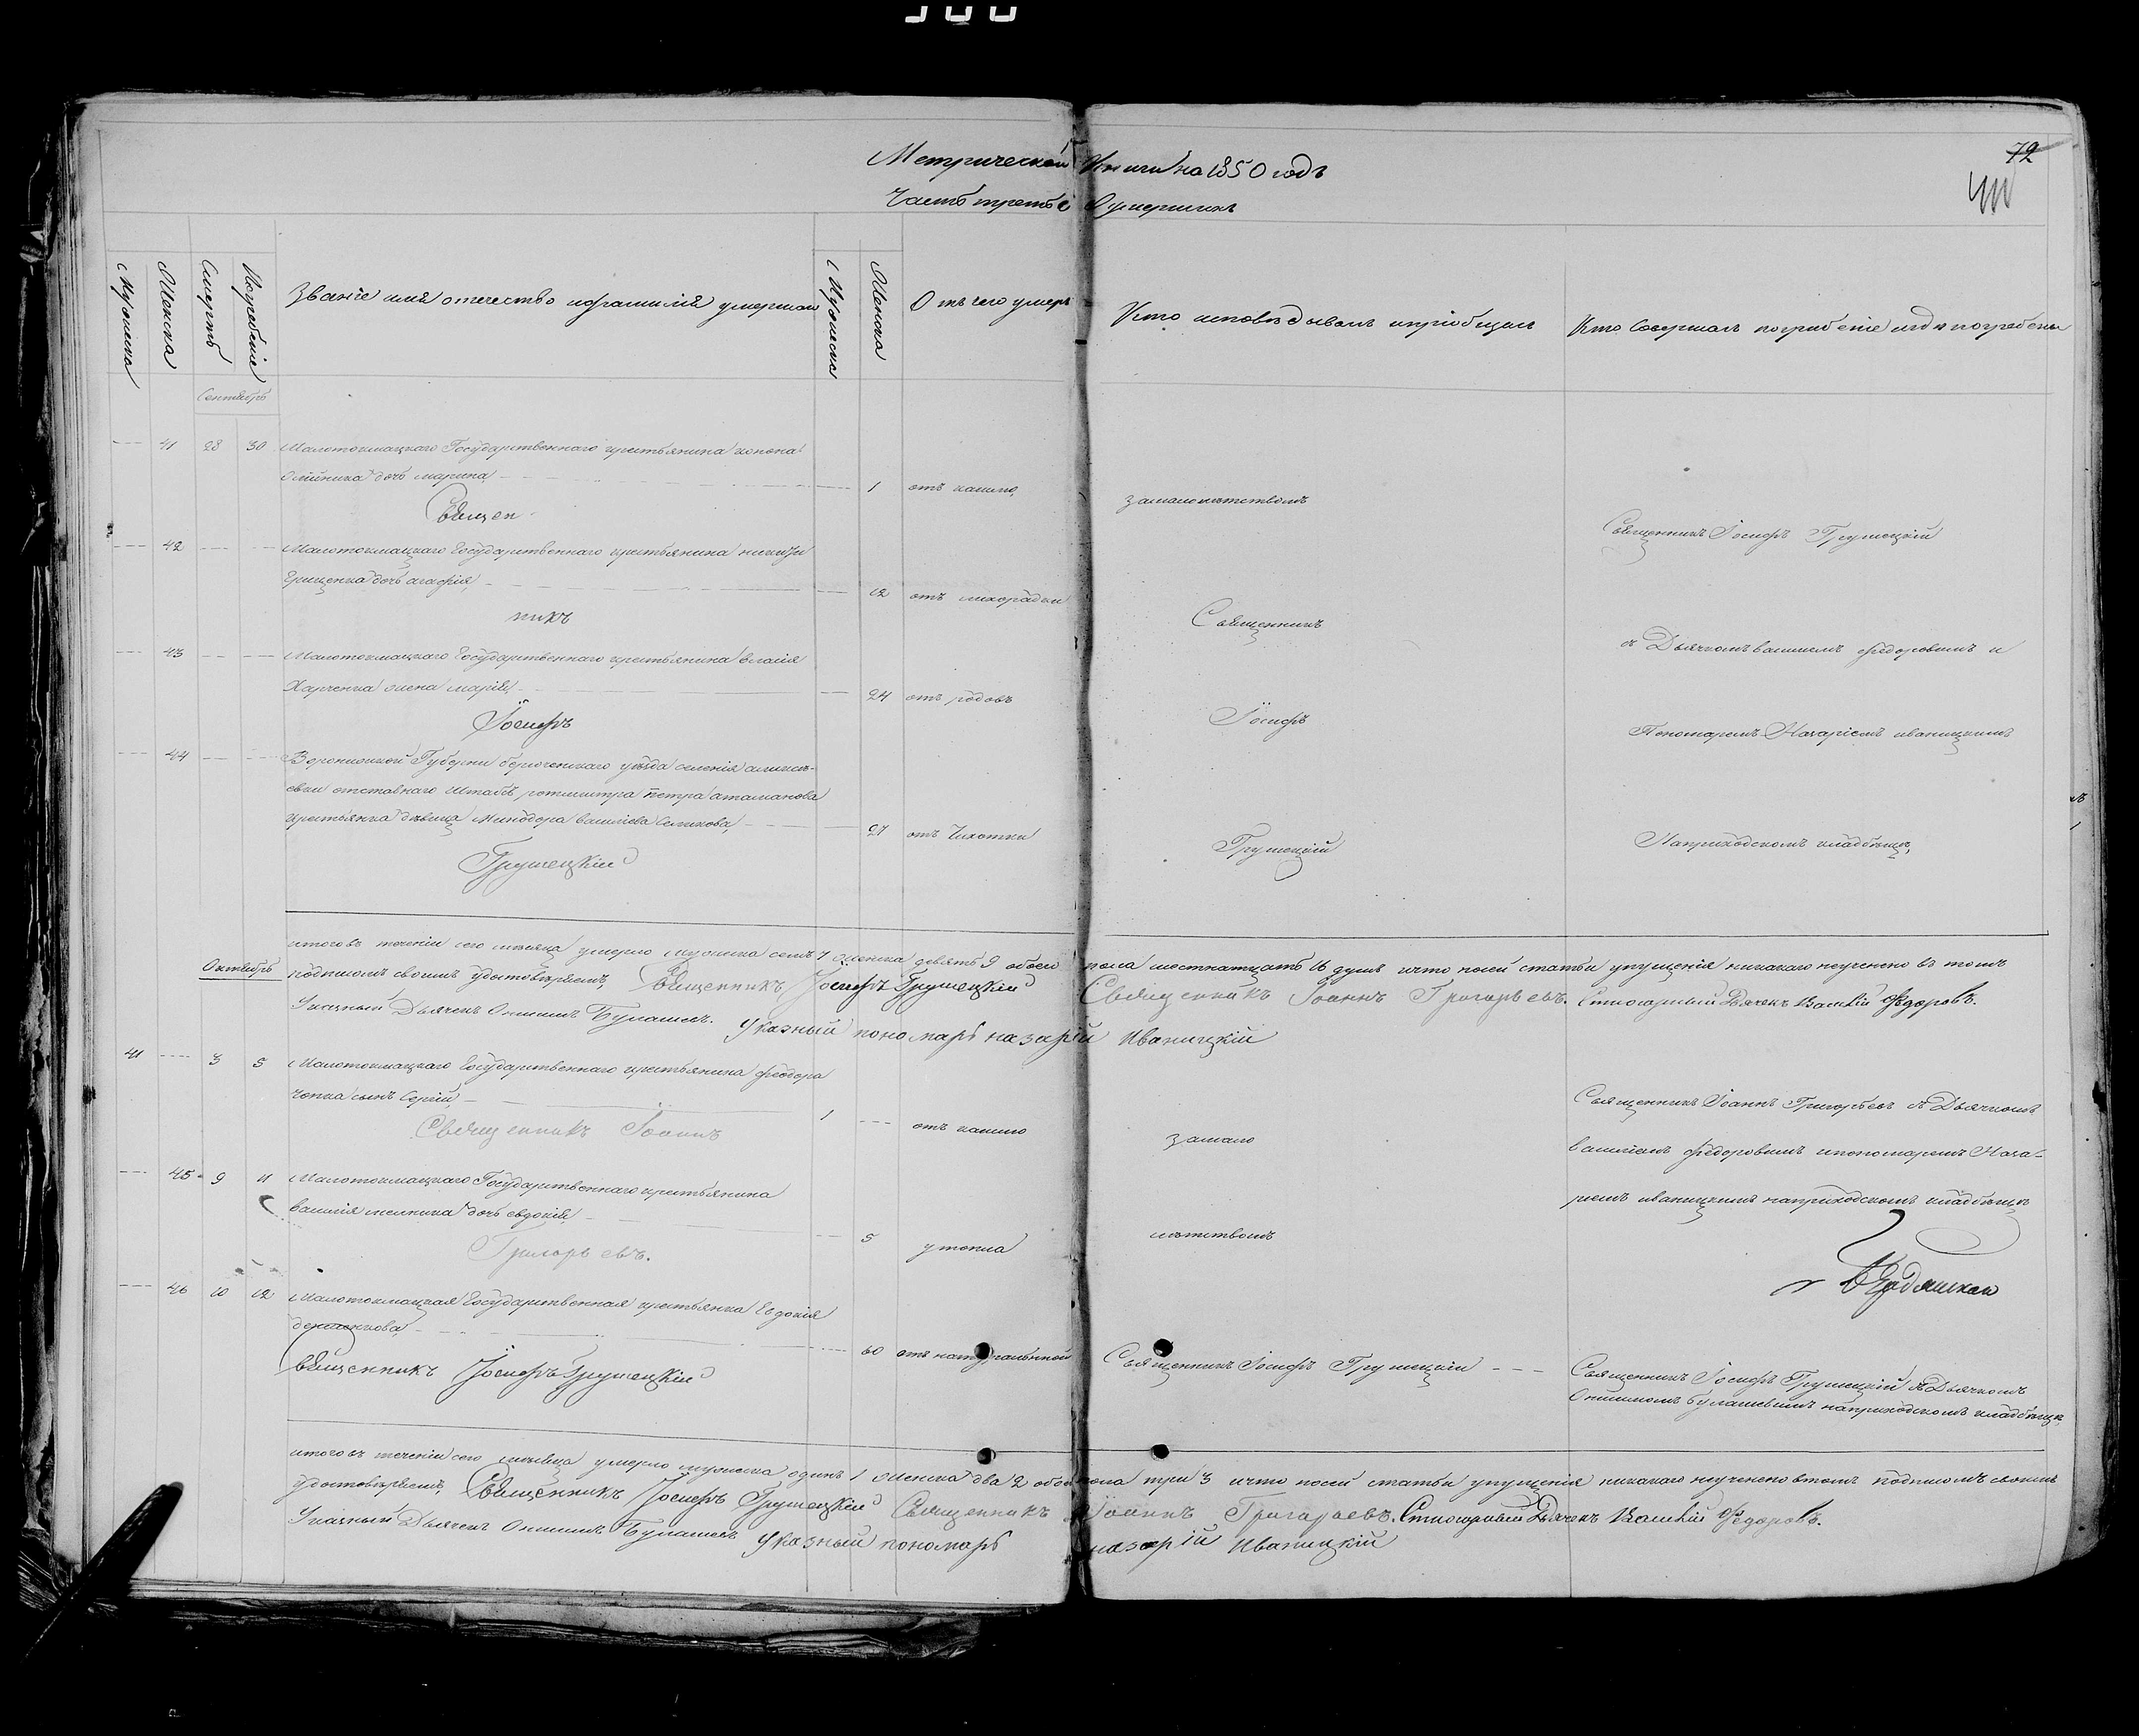 Метрической Книги на 1850 годъ
72
Часть третья О умершихъ
Мужеска
Женска
Смерть
Погребеніе
Званіе имя отечество и фамилія умершаго
Мужеска
Женска
Отъ чего умеръ
Кто исповѣдывалъ и пріобщалъ
Кто Совершалъ погребеніе и гдѣ погребены
Сентябрь
41 28 30 Малотокмацкаго Государственнаго крестьянина конона
Олійника дочь марина 1 отъ кашлю
за малолетствомъ
Священ
Священникъ Іосифъ Грушецкій
42 Малотокмацкаго Государственнаго крестьянина никиты
Грищенка дочь агафія 12 отъ лихорадки
никъ
Священникъ
съ Дьячкомъ василіемъ федоровымъ и
43 Малотокмацкаго Государственнаго крестьянина власія
Харченка жена марія 24 отъ родовъ
Іосифъ
Іосифъ
Пономаремъ Назаріемъ иваницкимъ
44 Воронежской Губерни бирюченскаго уѣзда селенія алексѣ-
евки отставнаго Штабъ ротмистра петра атаманова
крестьянка дѣвица Минодора василіева 27 отъ Чихотки
Грушецкій
Грушецкій
На приходскомъ кладбищѣ,
итого въ теченіи сего месяца умерло мужеска семь 7 женска девять 9 обоего пола шестнатцать 16 душъ и что посей статьи упущенія никакаго неучинено въ томъ
Октябрь
подписомъ своимъ удостовѣряемъ, Священникъ Іосифъ Грушецкій Священникъ Іоаннъ Григорьевъ. Стихарный Дьячекъ Василій Федоровъ.
Указный Дьячекъ Онисимъ Булашевъ. Указный пономарь назарій Иваницкій
41 3 5 Малотокмацкаго Государственнаго крестьянина феодора
чопка сынъ Сергій 1 отъ кашлю
за мало
Священникъ Іоаннъ
Священникъ Іоаннъ Григорьевъ съ Дьячкомъ
василіемъ федоровымъ и пономаремъ Наза-
ріемъ иваницкимъ на приходскомъ кладбищѣ
45 9 11 Малотокмацкаго Государственнаго крестьянина
василія мелника дочь евдокія 5 утопла
летствомъ
Григорьевъ.
46 10 12 Малотокмацкая Государственная крестьянка Евдокія
60 отъ натуральной
Священникъ Іосифъ Грушецкій
Священникъ Іосифъ Грушецкій
Священникъ Іосифъ Грушецкій съ Дьячкомъ
Онисимомъ булашевымъ на приходскомъ кладбищѣ,
итого въ теченіи сего месяца умерло мужеска одинъ 1 женска два 2 обоего пола три 3 и что посей статьи упущенія никакаго неучинено в томъ подписомъ своимъ
удостовѣряемъ, Священникъ Іосифъ Грушецкій Священникъ Іоаннъ Григорьевъ. Стихарный Дьячекъ Василій Федоровъ.
Указный Дьячекъ Онисимъ Булашевъ Указный пономарь назарій Иваницкій